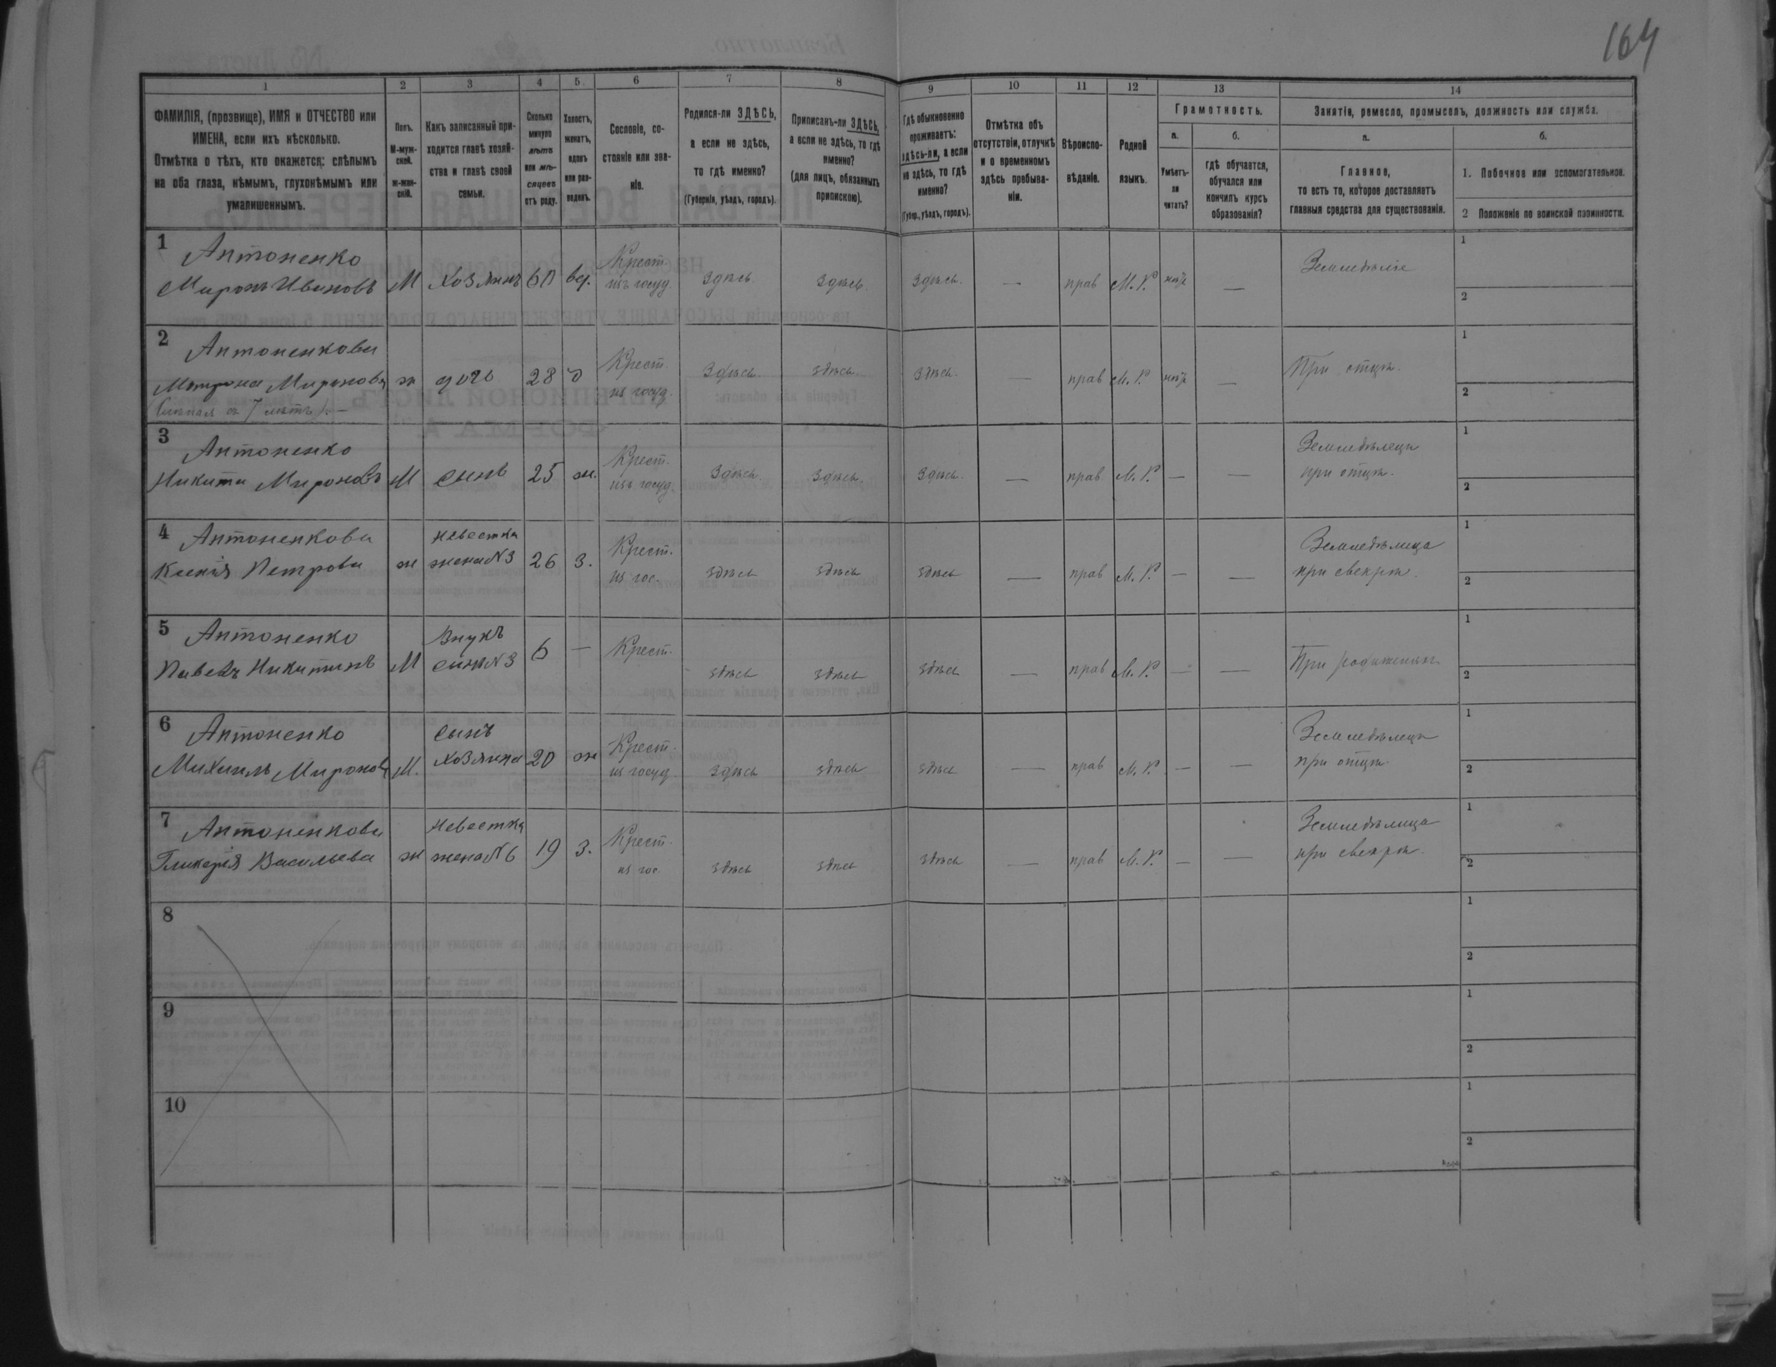 164
1 2 3 4 5 6 7 8 9 10 11 12 13 14
ФАМИЛІЯ, (прозвище), ИМЯ и ОТЧЕСТВО или
ИМЕНА, если ихъ нѣсколько.
Отмѣтка о тѣхъ, кто окажется: слѣпымъ
на оба глаза, нѣмымъ, глухонѣмымъ или
умалишеннымъ.
Полъ.
М-муж-
ской.
ж-жен-
скій.
Какъ записанный при-
ходится главѣ хозяй-
ства и главѣ своей
семьи.
Сколько
минуло
лѣтъ
или мѣ-
сяцевъ
отъ роду.
Холостъ,
женатъ,
вдовъ
или раз-
веденъ.
Сословіе, со-
стояніе или зва-
ніе.
Родился-ли ЗДѢСЬ,
а если не здѣсь,
то гдѣ именно?
(Губернія, уѣздъ, городъ).
Приписанъ-ли ЗДѢСЬ,
а если не здѣсь, то гдѣ
именно?
(для лицъ, обязанныхъ
припискою).
Гдѣ обыкновенно
проживаетъ:
здѣсь-ли, а если
не здѣсь, то гдѣ
именно?
(Губер., уѣздъ, городъ).
Отмѣтка объ
отсутствіи, отлучкѣ
и о временномъ
здѣсь пребыва-
ніи.
Вѣроиспо-
вѣданіе.
Родной
языкъ.
Грамотность.
а. б.
Умѣетъ-
ли
читать?
гдѣ обучается,
обучался или
кончилъ курсъ
образованія?
Занятіе, ремесло, промыселъ, должность или служба.
а. б.
Главное,
то есть то, которое доставляетъ
главныя средства для существованія.
1. Побочное или вспомогательное.
2 Положеніе по воинской повинности.
1 Антоненко
Миронъ Ивановъ М Хозяинъ 60 вд. Крест. изъ госуд. Здѣсь Здѣсь Здѣсь — прав М. Р. нѣтъ — Земледѣліе 1 2
2 Антоненкова
Матрона Миронова ж дочь 28 д Крест. из госуд. Здѣсь здѣсь здѣсь — прав М. Р. нѣтъ — При отцѣ. 1 2
3 Антоненко
Никита Мироновъ М сынъ 25 ж. Крест. изъ госуд. Здѣсь Здѣсь Здѣсь — прав М. Р. — — Земледѣлецъ при отцѣ. 1 2
4 Антоненкова
Ксенія Петрова ж невестка жена N3 26 З. Крест. из гос. здѣсь здѣсь здѣсь — прав М. Р. — — Земледѣлица при свекрѣ. 1 2
5 Антоненко
Павелъ Никитинъ М Внукъ сынъ N3 6 — Крест. здѣсь здѣсь здѣсь — прав М. Р. — — При родителях. 1 2
6 Антоненко
Михаилъ Миронов М. сынъ хозяина 20 ж Крест. из госуд. здѣсь здѣсь здѣсь — прав М. Р. — — Земледѣлецъ при отцѣ. 1 2
7 Антоненкова
Гликерія Васильева ж невестка жена N6 19 З. Крест. из гос. здѣсь здѣсь здѣсь — прав М. Р. — — Земледѣлица при свекрѣ. 1 2
8 1 2
9 1 2
10 1 2